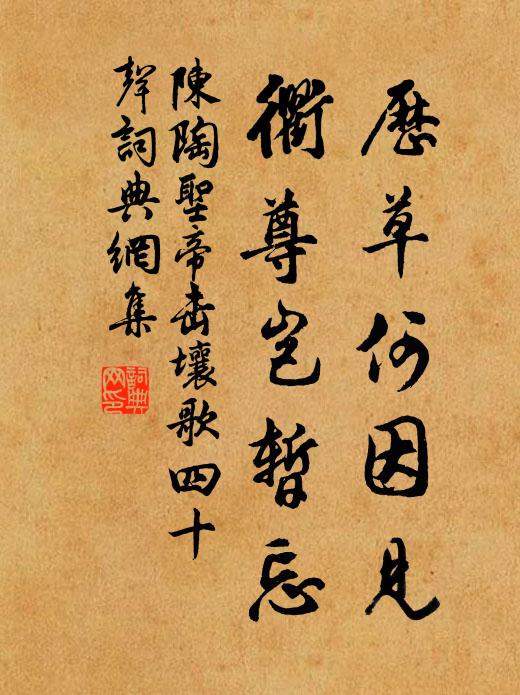 歷草何因見
衢尊豈暫忘
陳陶聖帝擊壤歌四十
聲詞典網集
詞典
网印